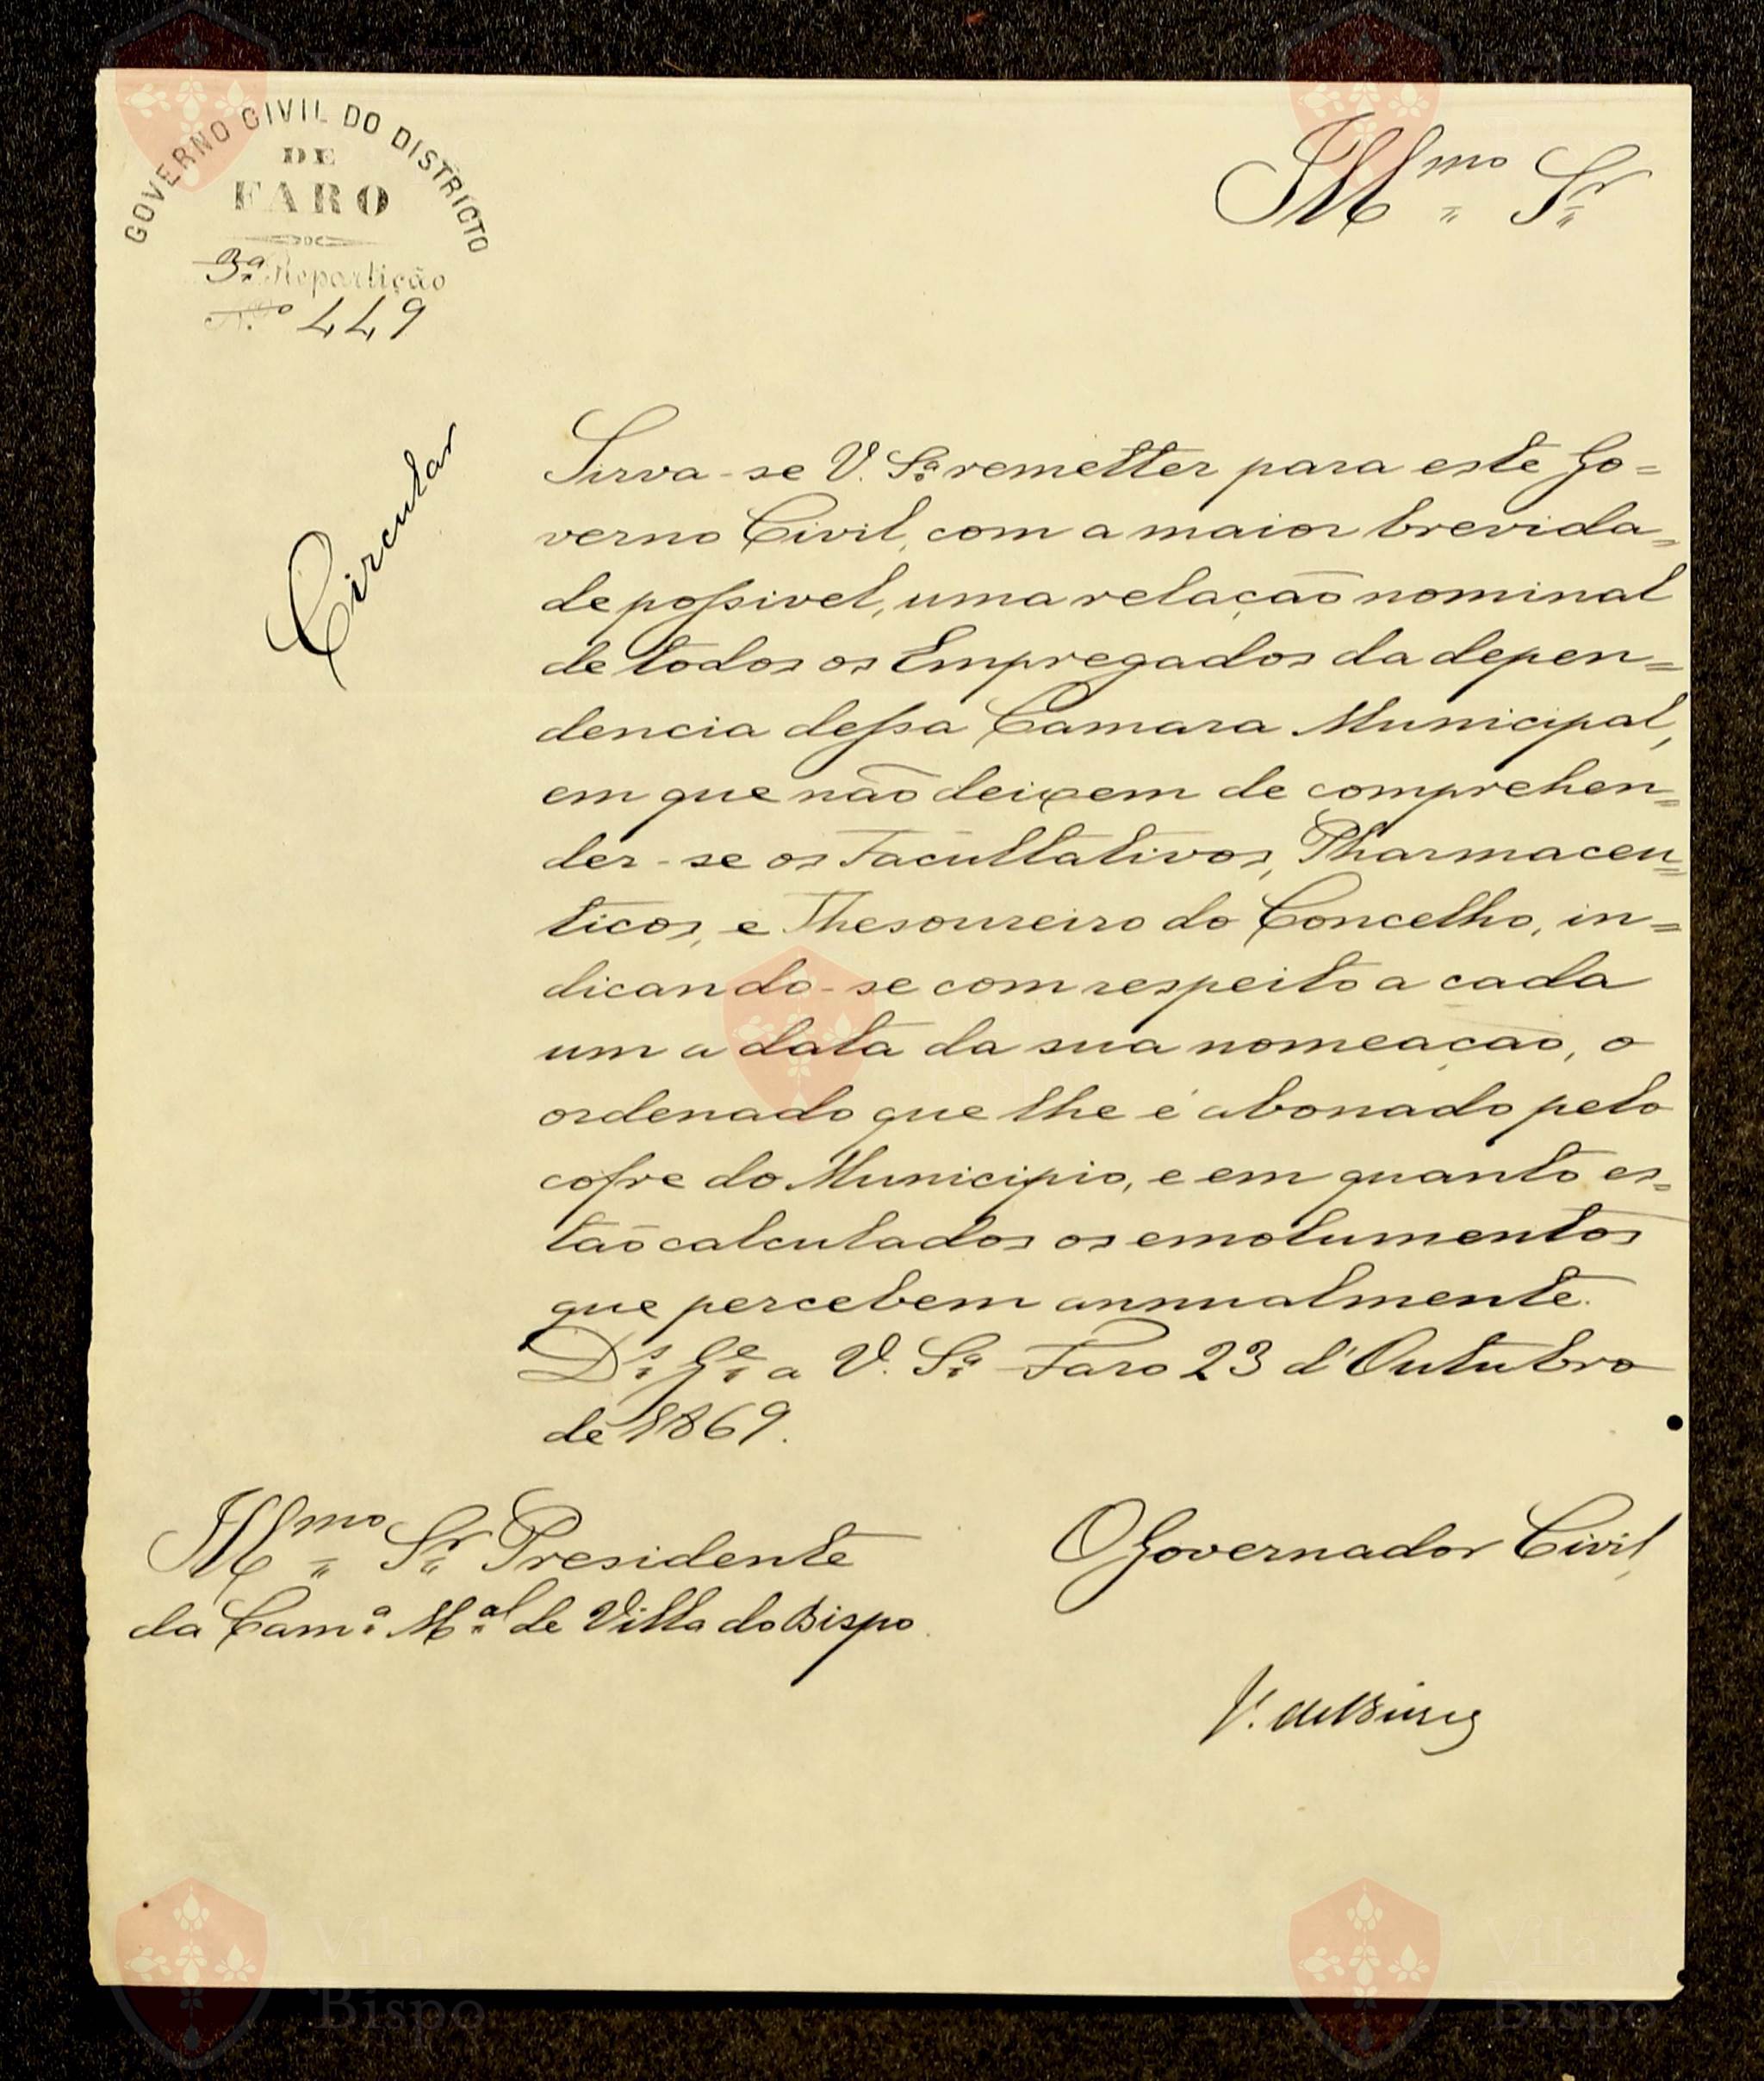 GOVERNO CIVIL DO DISTRICTO
DE
FARO
3ª Repartição
N.º 449
Illmo Sr
Circular
Sirva-se V. Sª remetter para este Go=
verno Civil, com a maior brevida=
de possivel, uma relação nominal
de todos os Empregados da depen=
dencia dessa Camara Municipal,
em que não deixem de comprehen=
der-se os Facultativos, Pharmaceu=
ticos, e Thesoureiro do Concelho, in=
dicando-se com respeito a cada
um a data da sua nomeação, o
ordenado que lhe é abonado pelo
cofre do Municipio, e em quanto es=
tão calculados os emolumentos
que percebem annualmente.
Ds Ge a V. Sª Faro 23 d'Outubro
de 1869.
Illmo Sr Presidente
da Camª Mal de Villa do Bispo.
O Governador Civil,
V. de
Vila do
Bispo
Vila do
Bispo